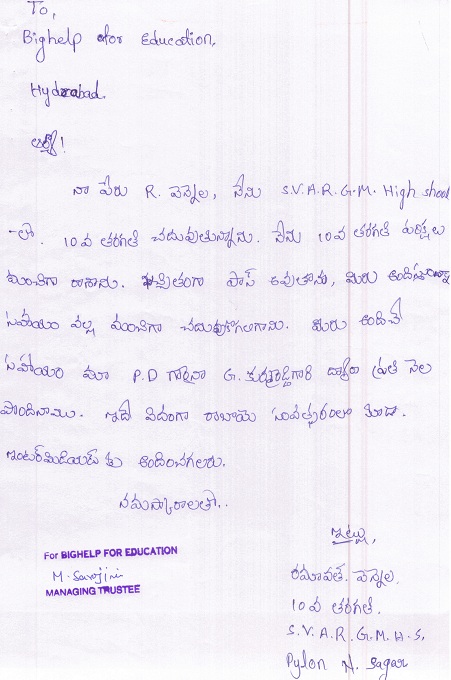 To,
Bighelp for Education,
Hyderabad.
ఆర్యా!
నా పేరు R. వెన్నెల, నేను S.V.A.R.G.M. High shool
-లో. 10వ తరగతి చదువుతున్నాను. నేను 10వ తరగతి పరిక్షలు
మంచిగా రాసాను. ఖచ్చితంగా పాస్ అవుతాను, మీరు అందిస్తున్న
సహాయం వల్ల మంచిగా చదువుకోగలిగాను. మీరు అందించే
సహాయం మా P.D గారైనా G. కుర్మారెడ్డిగారి ద్వారా ప్రతి నెల
పొందినాము. ఇదే విదంగా రాబోయె సంవత్సరంలో కూడా.
ఇంటర్మిడియేట్ కు అందించగలరు.
నమస్కారాలతో..
ఇట్లు,
రమావత్. వెన్నెల.
10వ తరగతి.
S.V.A.R.G.M.H.S,
Pylon N. Sagar
For BIGHELP FOR EDUCATION
M. Sarojini
MANAGING TRUSTEE